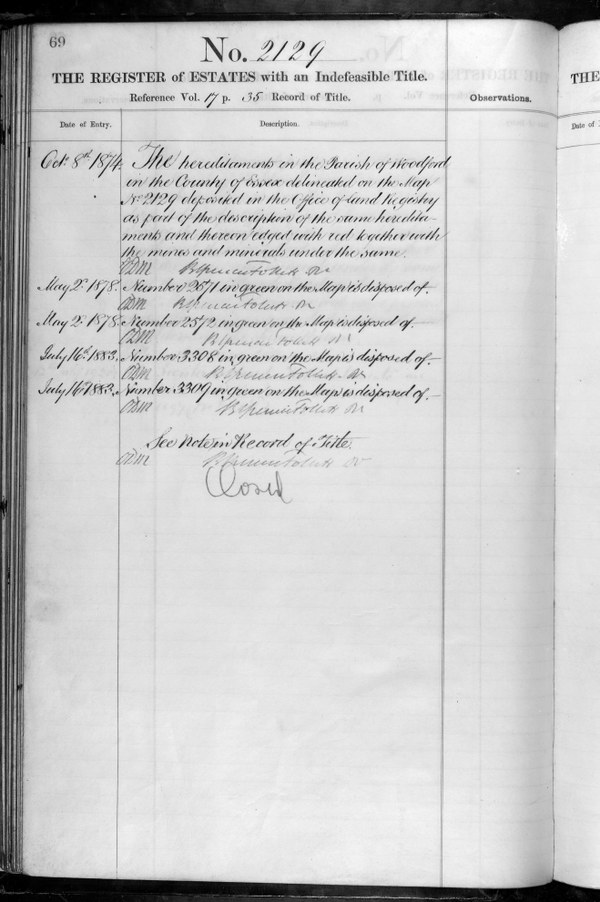 69
No. 2129
THE REGISTER of ESTATES with an Indefeasible Title.
Reference Vol. 17 p. 35 Record of Title.
Observations.
Date of Entry.
Description.
Oct. 8th 1874. The hereditaments in the Parish of Woodford
in the County of Essex delineated on the Map
No 2129 deposited in the Office of Land Registry
as part of the description of the same heredita-
ments and thereon edged with red together with
the mines and minerals under the same.
May 2d 1878. Number 2571 in green on the Map is disposed of.
May 2d 1878. Number 2572 in green on the Map is disposed of.
July 16th 1883. Number 3308 in green on the Map is disposed of.
July 16th 1883. Number 3309 in green on the Map is disposed of.
See Note in Record of Title.
Closed
THE
Date of